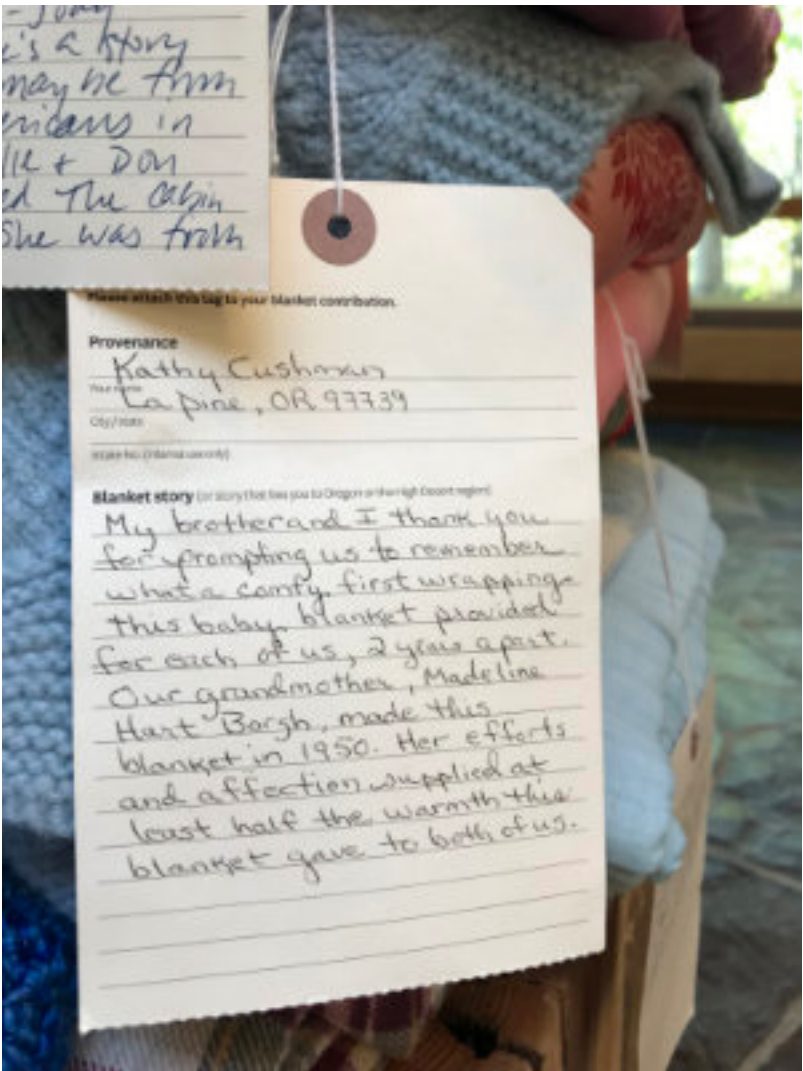 - Jody
e's a story
may be from
ericans in
lie + Don
ed The Cabin
She was from
Please attach this tag to your blanket contribution.
Provenance
Kathy Cushman
Your name
La Pine, OR 97739
City/State
Intake No. (internal use only)
Blanket story (or story that ties you to Oregon or the High Desert region)
My brother and I thank you
for prompting us to remember
what a comfy first wrapping
this baby blanket provided
for each of us, 2 years apart.
Our grandmother, Madeline
Hart Borgh, made this
blanket in 1950. Her efforts
and affection supplied at
least half the warmth this
blanket gave to both of us.